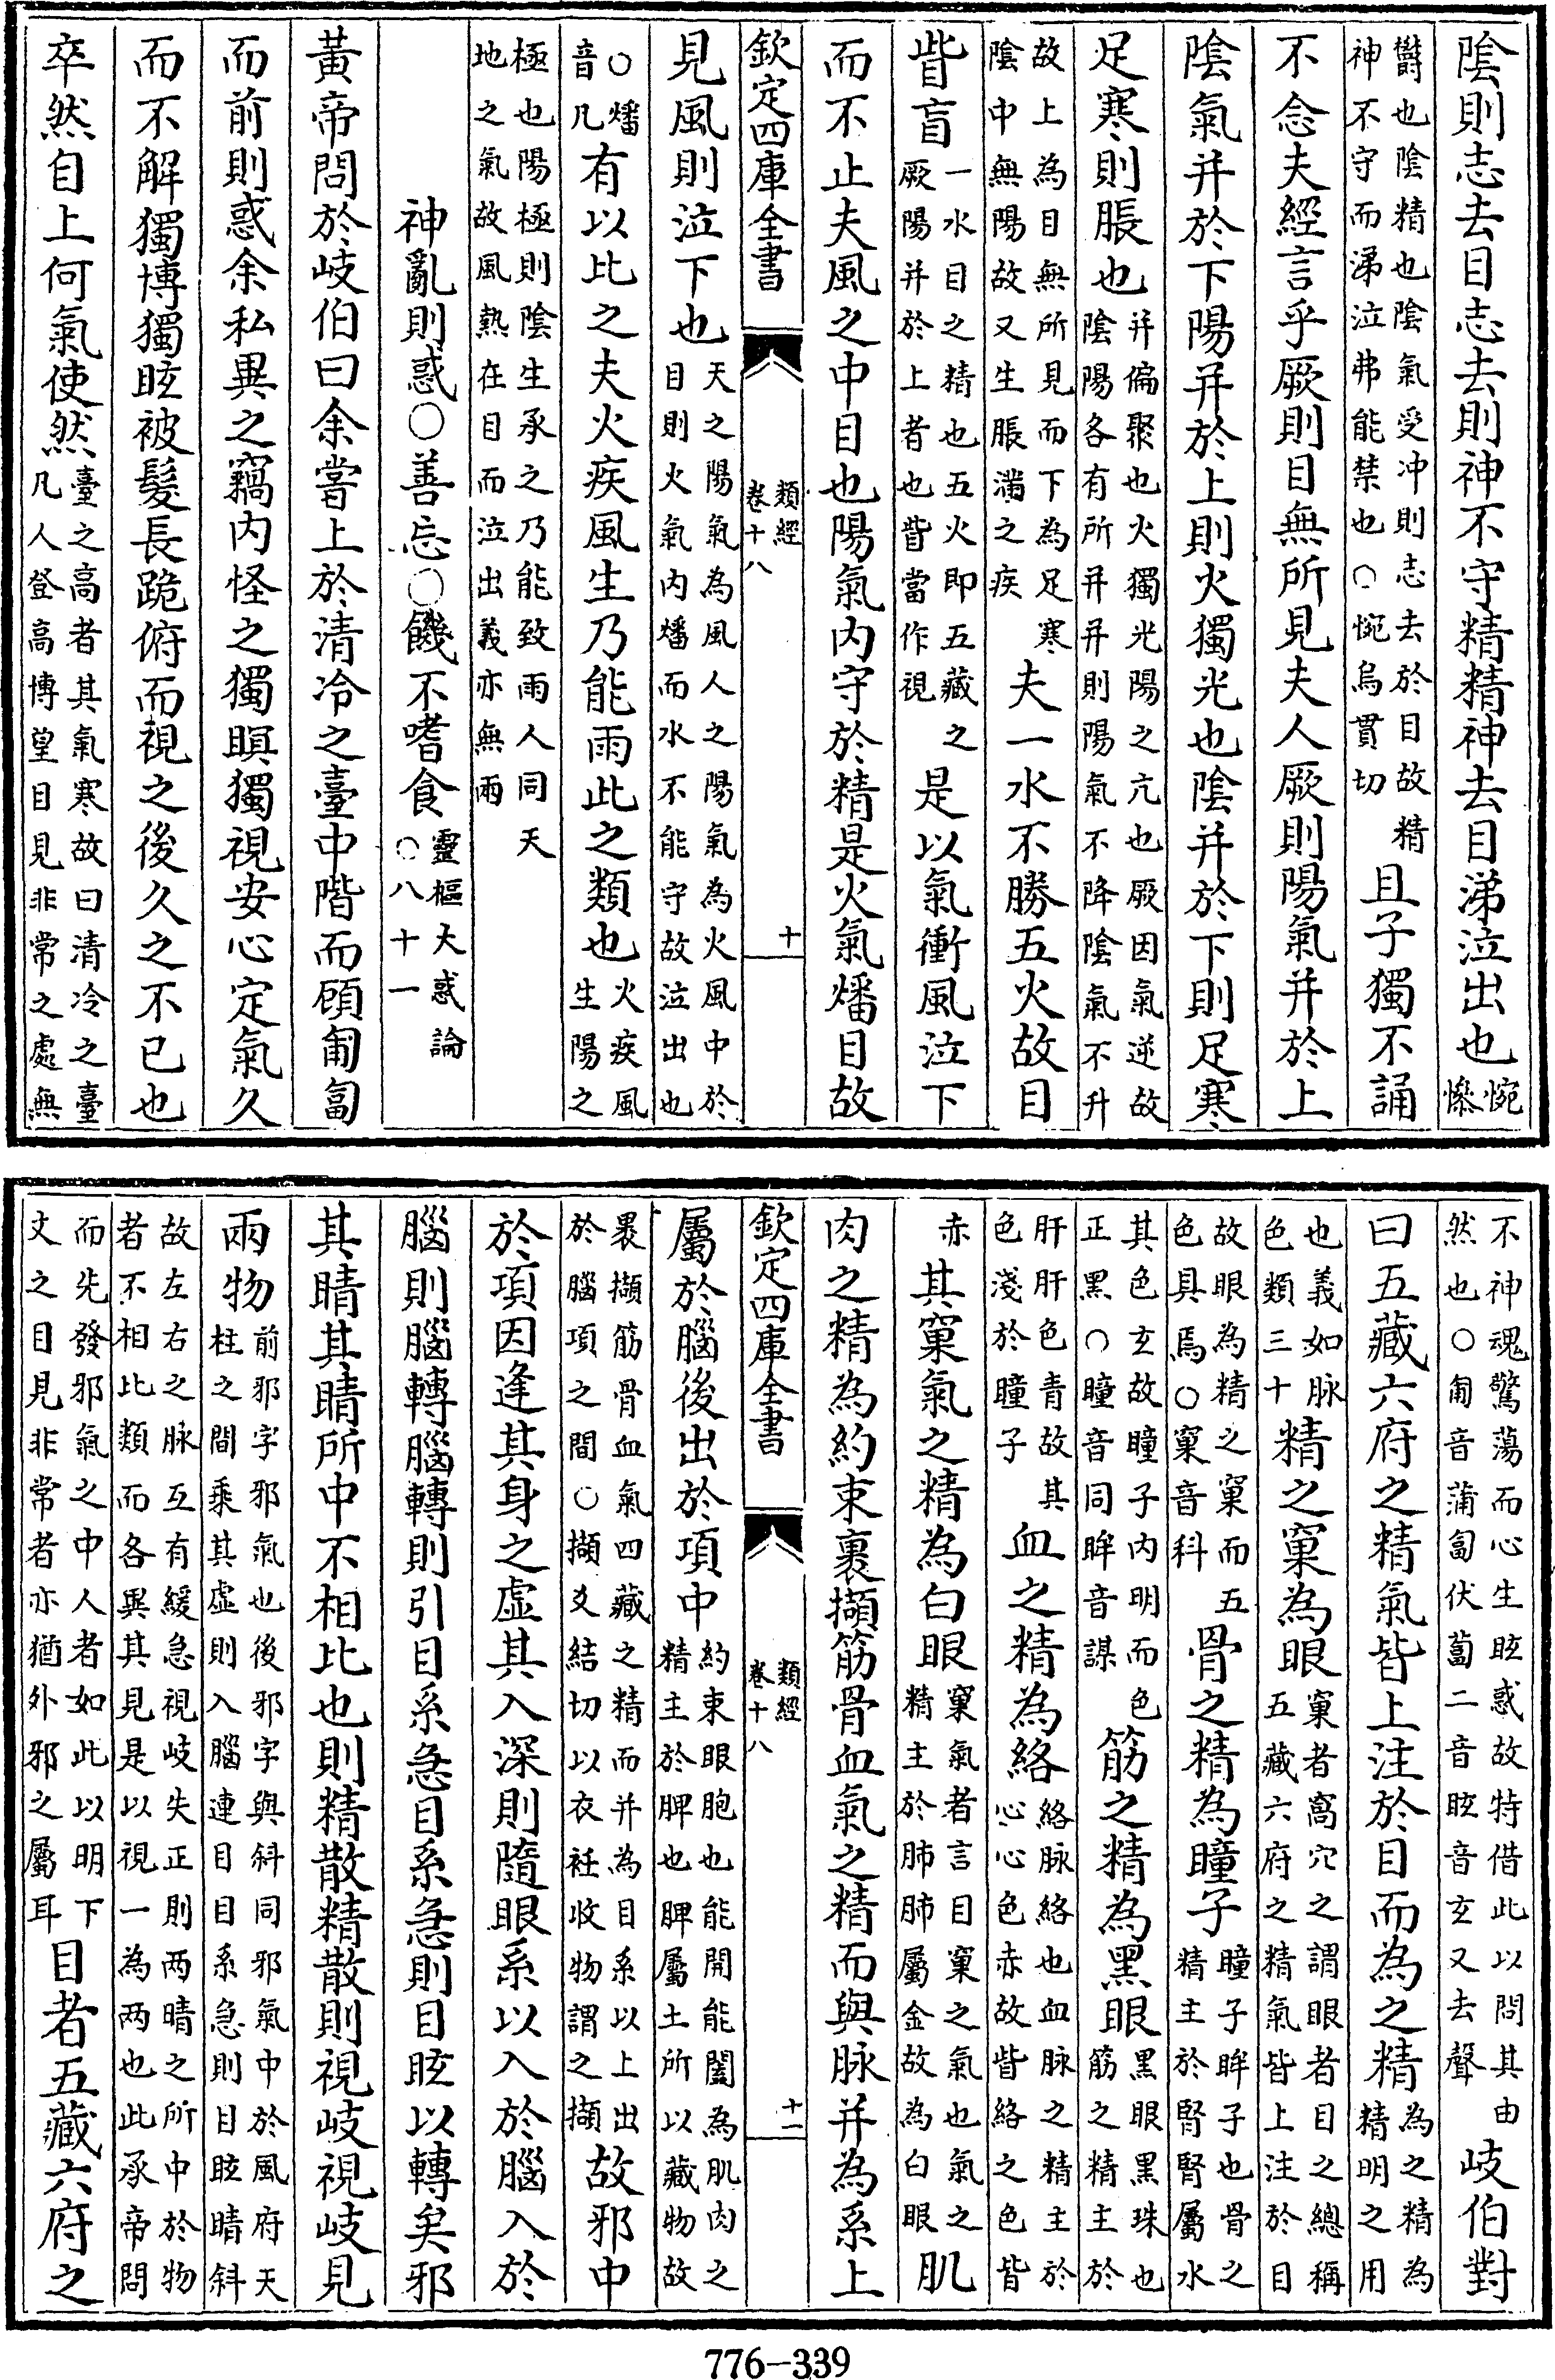 陰則志去目志去則神不守精精神去目涕泣出也惋
慘
欝也陰精也陰氣受冲則志去於目故精
神不守而涕泣弗能禁也○惋烏貫切
且子獨不誦
不念夫經言乎厥則目無所見夫人厥則陽氣并於上
陰氣并於下陽并於上則火獨光也陰并於下則足寒
足寒則脹也
并偏聚也火獨光陽之亢也厥因氣逆故
陰陽各有所并并則陽氣不降陰氣不升
故上為目無所見而下為足寒
陰中無陽故又生脹滿之疾
夫一水不勝五火故目
眥盲
一水目之精也五火即五藏之
厥陽并於上者也眥當作視
是以氣衝風泣下
而不止夫風之中目也陽氣内守於精是火氣燔目故
欽定四庫全書
類經
卷十八
十
見風則泣下也
天之陽氣為風人之陽氣為火風中於
目則火氣内燔而水不能守故泣出也
○燔
音凡
有以比之夫火疾風生乃能雨此之類也
火疾風
生陽之
極也陽極則陰生承之乃能致雨人同天
地之氣故風熱在目而泣出義亦無兩
神亂則惑○善忘○饑不嗜食
靈樞大惑論
○八十一
黃帝問於岐伯曰余嘗上於清冷之臺中階而顧匍匐
而前則惑余私異之竊内怪之獨瞑獨視安心定氣久
而不解獨博獨眩被髮長跪俯而視之後久之不已也
卒然自上何氣使然
臺之高者其氣寒故曰清冷之臺
凡人登高博望目見非常之處無
不神魂驚蕩而心生眩惑故特借此以問其由
然也○匍音蒲匐伏蔔二音眩音玄又去聲
岐伯對
曰五藏六府之精氣皆上注於目而為之精
為之精為
精明之用
也義如脉
色類三十
精之窠為眼
窠者窩穴之謂眼者目之總稱
五藏六府之精氣皆上注於目
故眼為精之窠而五
色具焉○窠音科
骨之精為瞳子
瞳子眸子也骨之
精主於腎腎屬水
其色玄故瞳子内明而色
正黑○瞳音同眸音謀
筋之精為黑眼
黑眼黑珠也
筋之精主於
肝肝色青故其
色淺於瞳子
血之精為絡
絡脉絡也血脉之精主於
心心色赤故眥絡之色皆
赤
其窠氣之精為白眼
窠氣者言目窠之氣也氣之
精主於肺肺屬金故為白眼
肌
肉之精為約束裹擷筋骨血氣之精而與脉并為系上
欽定四庫全書
類經
卷十八
十一
屬於腦後出於項中
約束眼胞也能開能闔為肌肉之
精主於脾也脾屬土所以藏物故
裹擷筋骨血氣四藏之精而并為目系以上出
於腦項之間○擷爻結切以衣衽收物謂之擷
故邪中
於項因逢其身之虚其入深則隨眼系以入於腦入於
腦則腦轉腦轉則引目系急目系急則目眩以轉矣邪
其睛其睛所中不相比也則精散精散則視岐視岐見
兩物
前邪字邪氣也後邪字與斜同邪氣中於風府天
柱之間乘其虚則入腦連目目系急則目眩睛斜
故左右之脉互有緩急視岐失正則两睛之所中於物
者不相比類而各異其見是以視一為两也此承帝問
而先發邪氣之中人者如此以明下
文之目見非常者亦猶外邪之屬耳
目者五藏六府之
776-339